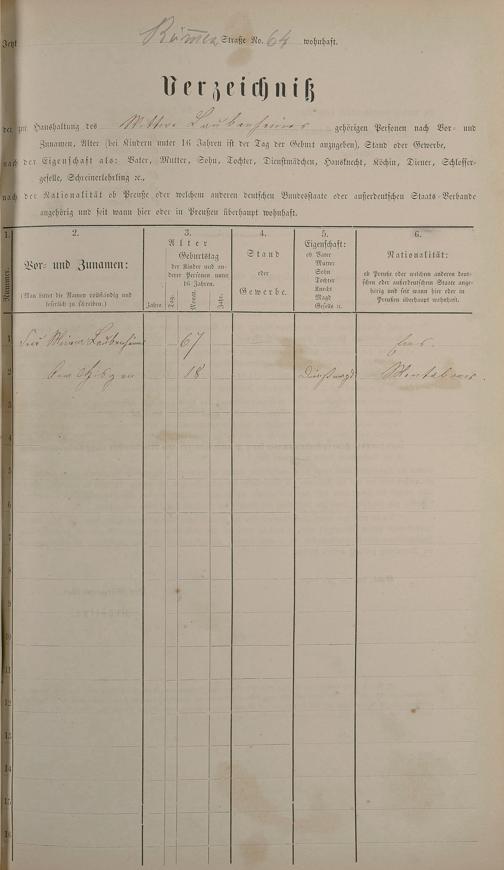 Jetzt Römer Straße No. 64 wohnhaft.
Verzeichniß
der zur Haushaltung des Wittwe Laubenheimer gehörigen Personen nach Vor- und
Zunamen, Alter (bei Kindern unter 16 Jahren ist der Tag der Geburt anzugeben), Stand oder Gewerbe,
nach der Eigenschaft als: Vater, Mutter, Sohn, Tochter, Dienstmädchen, Hausknecht, Köchin, Diener, Schlosser-
geselle, Schreinerlehrling ꝛc.,
nach der Nationalität ob Preuße oder welchem anderen deutschen Bundesstaate oder außerdeutschen Staats-Verbande
angehörig und seit wann hier oder in Preußen überhaupt wohnhaft.
1.
Nummer.
2.
Vor- und Zunamen:
(Man bittet die Namen vollständig und
leserlich zu schreiben.)
3.
Alter
Geburtstag
der Kinder und an-
derer Personen unter
16 Jahren.
Jahre.
Tag.
Monat.
Jahr.
4.
Stand
oder
Gewerbe.
5.
Eigenschaft:
ob Vater
Mutter
Sohn
Tochter
Knecht
Magd
Geselle ꝛc.
6.
Nationalität:
ob Preuße oder welchem anderen deut-
schen oder außerdeutschen Staate ange-
hörig und seit wann hier oder in
Preußen überhaupt wohnhaft.
1 Laubenheimer 67 Ems.
2 18 Dienstmagd Montabaur.
3
4
5
6
7
8
9
10
11
12
13
14
15
16